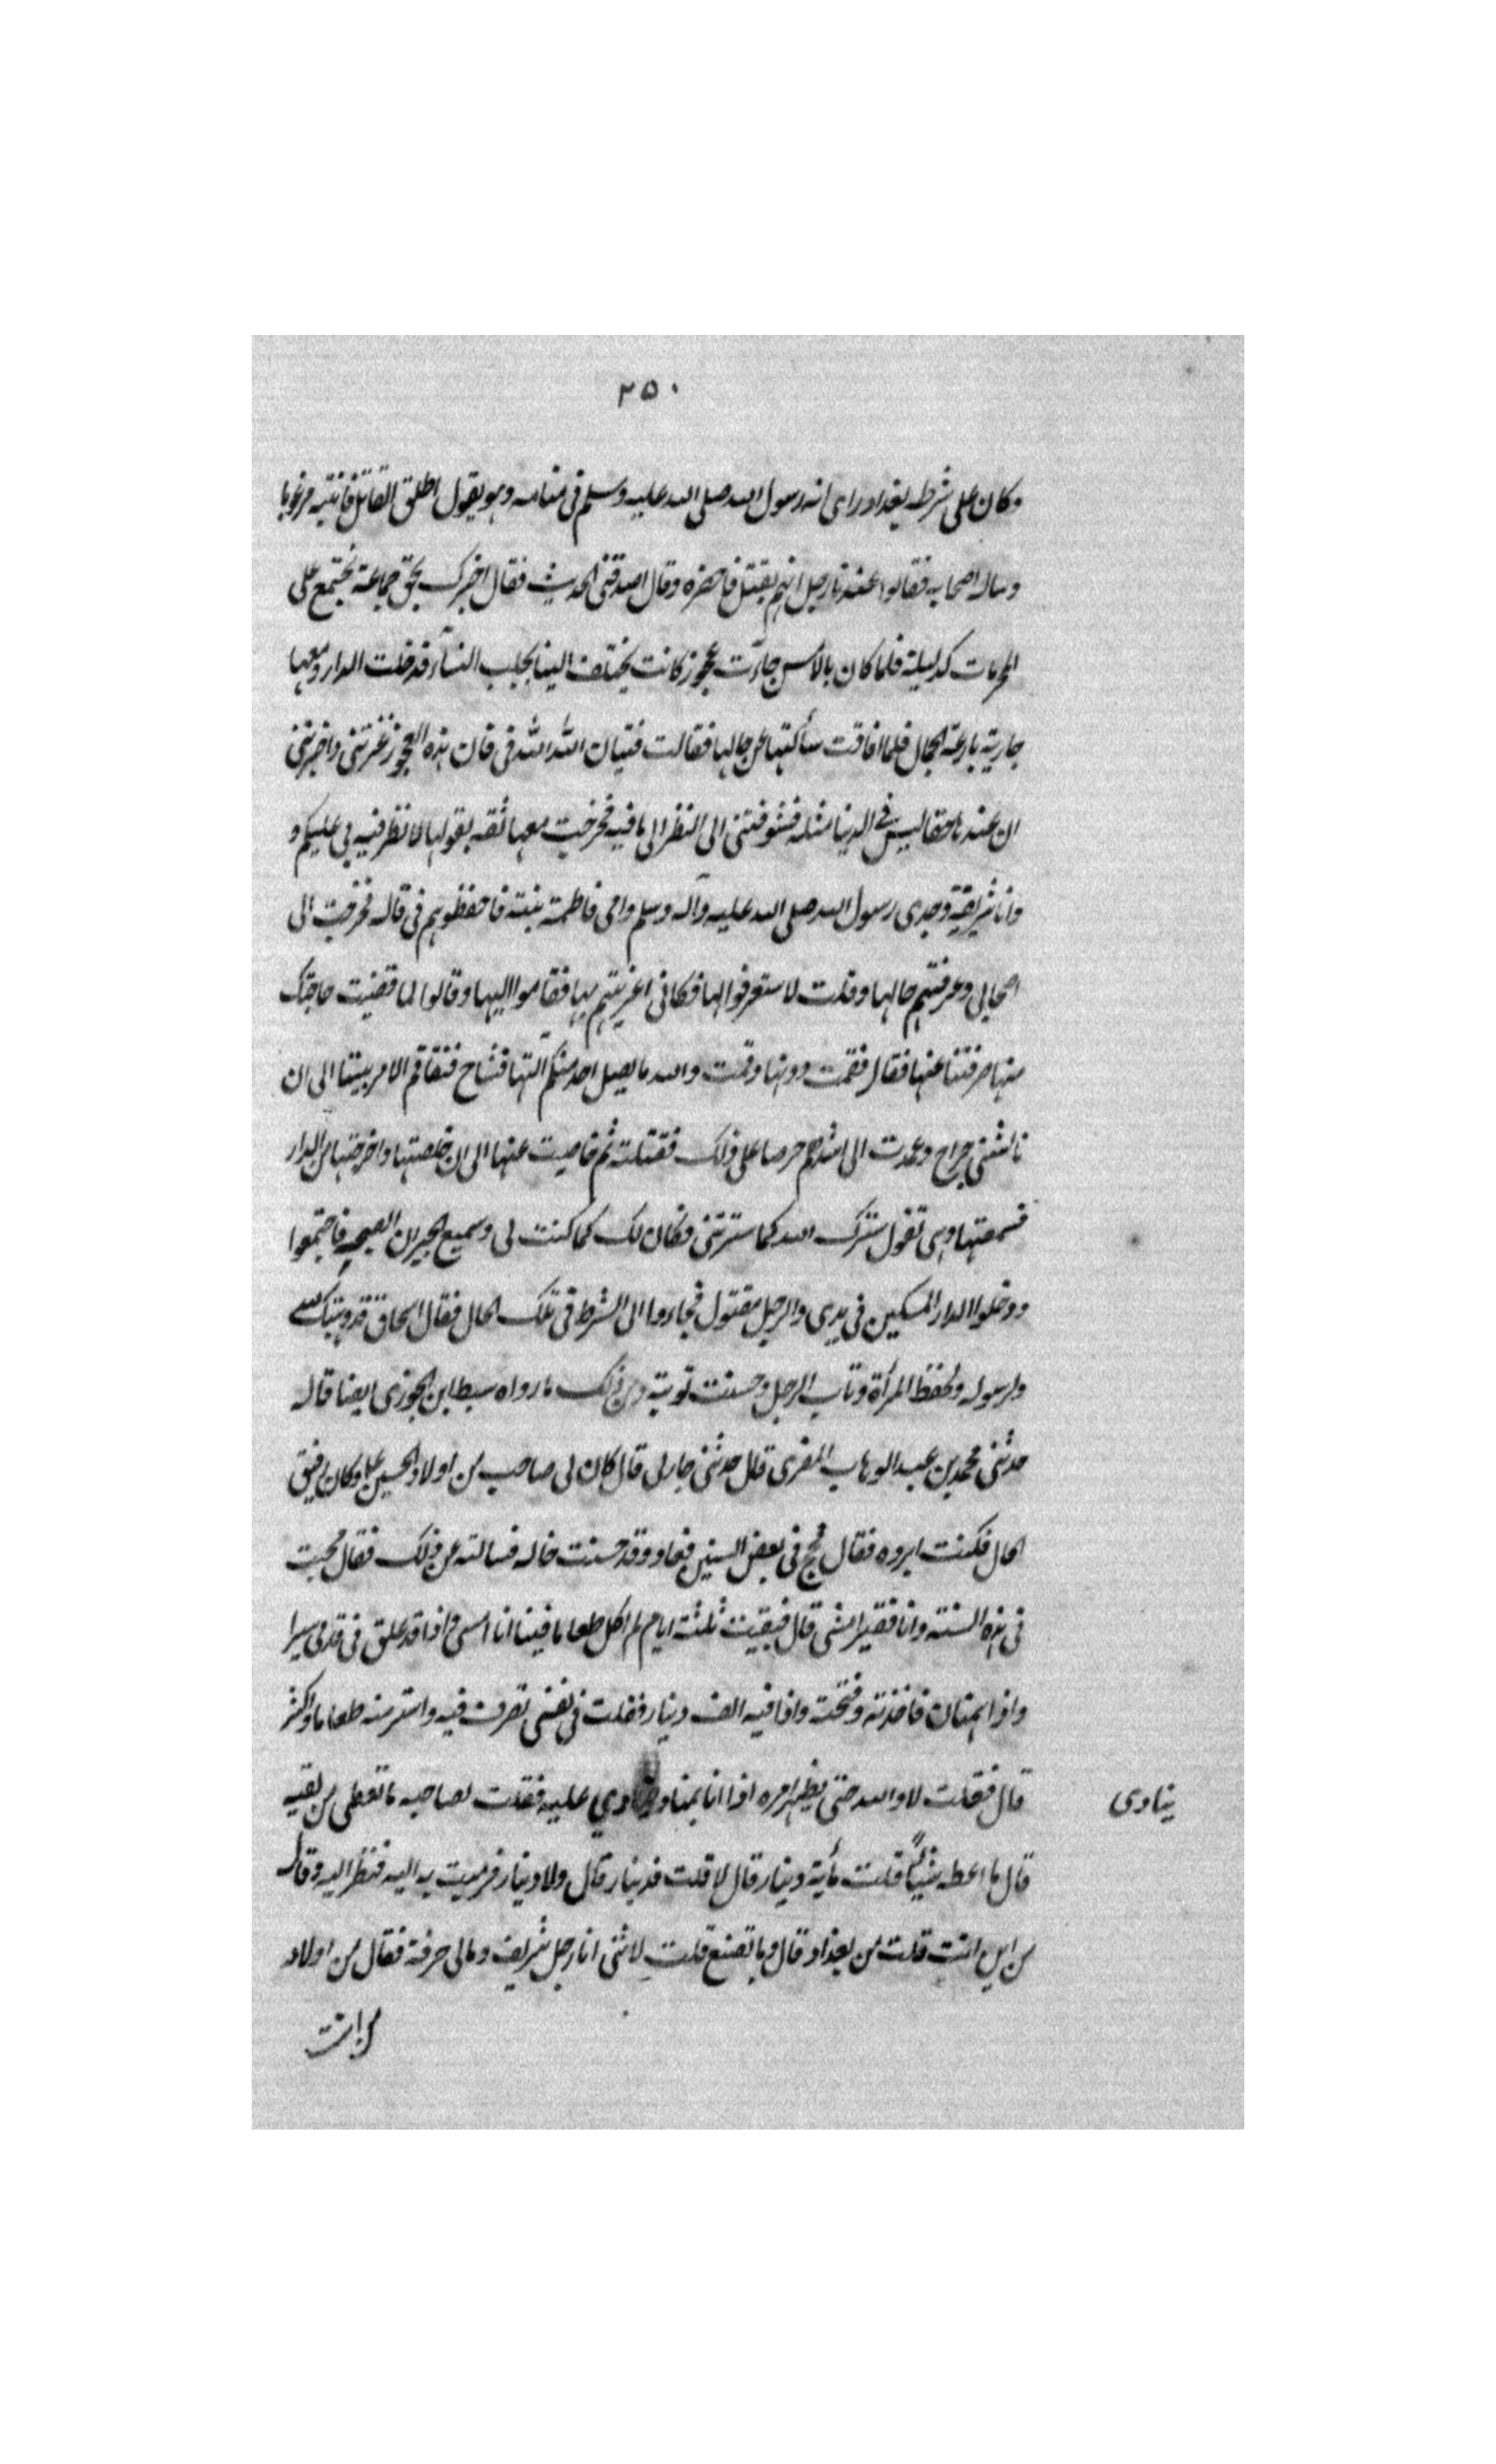 ٢٥٠
وكان على شرطه بغداد راى انه رسول الله صلى الله عليه وسلم فى منامه وهو يقول اطلق القاتل فانتبه مرعوبا
وسال اصحابه فقالوا عندنا رجل اتهم بقتل فاحضره وقال اصدقنى الحديث فقال اخبرك بحق جماعة نجتمع على
المحرمات كل ليلة فلما كان بالامس جاءت عجوز كانت يختلف الينا بجلب النساء فدخلت الدار ومعها
جارية بارعة الجمال فلما افاقت سألتها عن حالها فقالت فتيان الله الله فى فان هذه العجوز غرتنى واخبرتنى
ان عندنا حقا ليس فى الدنيا مثله فشوقتنى الى النظر الى ما فيه فخرجت معها ثقه بقولها لانظر فيه بى عليكم و
وانا شريفة وجدى رسول الله صلى الله عليه وآله وسلم وامى فاطمة بنته فاحفظوهم فى قال فخرجت الى
اصحابى وعرفتهم حالها وقلت لا ستعرفوا لها فكانى اغريتهم بها فقاموا اليها وقالوا لما قضيت حاجتك
منها صرفتنا عنها فقال فقمت دونها وقلت والله ما يصل احد منكم اليها فتفاقم الامر بيننا الى ان
نالتنى جراح وعمدت الى اشدهم حرصا على ذلك فقتلته ثم خاصيت عنها الى ان خلصتها واخرجتها من الدار
فسمعتها وهى تقول سترك الله كما سترتنى وكان لك كما كنت لى وسميع الجيران الصيحة فاجتمعوا
ودخلوا الدار السكين فى يدى والرجل مقتول فجاءوا الى الشرط فى تلك الحال فقال اسحاق قد وهبتك لله
ولرسوله ولحفظ المرأة وتاب الرجل وحسنت توبته ومن ذلك ما رواه سبط ابن الجوزى ايضا قال
حدثنى محمد بن عبد الوهاب المقرى قال حدثنى جار لى قال كان لى صاحب من اولاد الحسين ع وكان رقيق
الحال فكنت ابره فقال فحج فى بعض السنين فعاد وقد حسنت حاله فسالته عن ذلك فقال حججت
فى هذه السنة وانا فقير امشى قال فبقيت ثلثة ايام لم اكل طعاما فبينا انا امسى واذا قد علق فى قدمى سيرا
واذا هميان فاخذته وفتحت واذا فيه الف دينار فقلت فى نفسى تصرف فيه واشتر منه طعاما واكثر
قال فقلت لا والله حتى يظهر امره اذا انا بمناد ينادي عليه فقلت لصاحبه ما تعطى من لقيه
قال ما اعطه شيئاً قلت مأية دينار قال لا قلت فدينار قال ولا دينار فرميت به اليه فنظر اليه وقال
من اين انت قلت من بغداد قال وما تصنع قلت لا شئ انا رجل شريف ومالى حرفة فقال من اولاد
من انت
ينادى